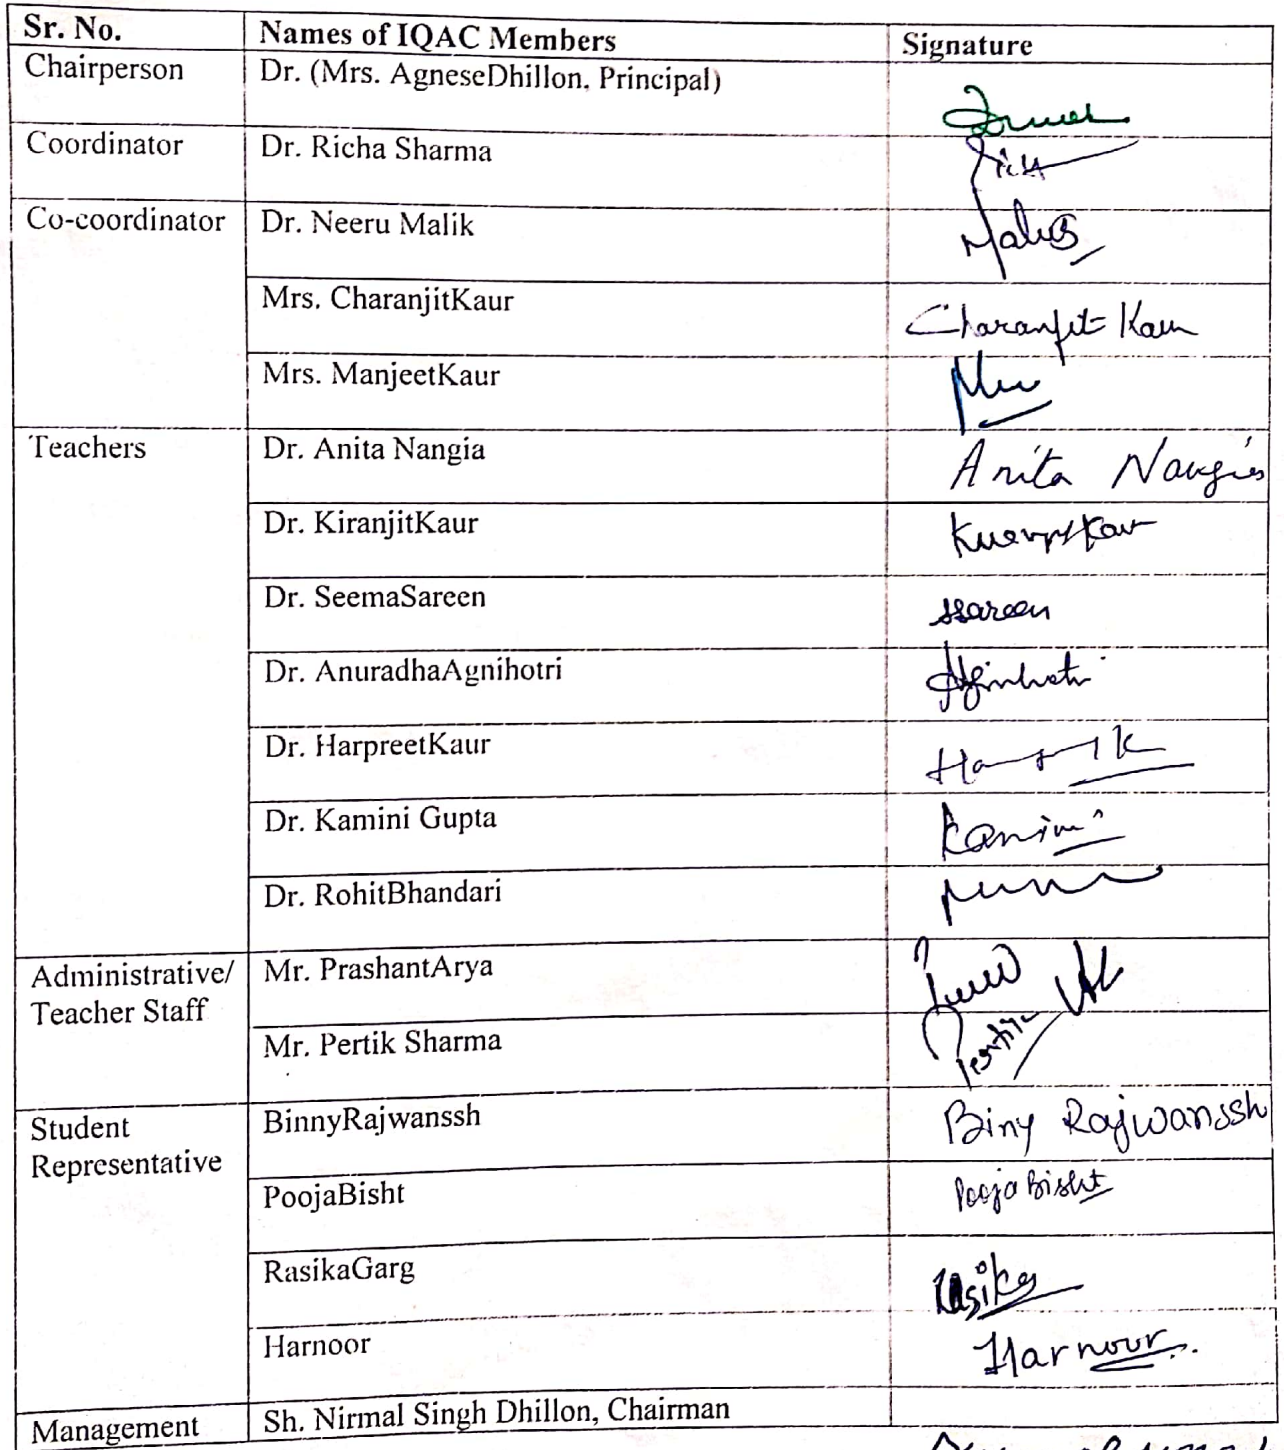 Sr. No. Names of IQAC Members Signature
Chairperson Dr. (Mrs. AgneseDhillon, Principal)
Coordinator Dr. Richa Sharma
Co-coordinator Dr. Neeru Malik
Mrs. CharanjitKaur Charanjit Kaur
Mrs. ManjeetKaur
Teachers Dr. Anita Nangia Anita Nangia
Dr. KiranjitKaur
Dr. SeemaSareen SSareen
Dr. AnuradhaAgnihotri
Dr. HarpreetKaur
Dr. Kamini Gupta Kamini
Dr. RohitBhandari
Administrative/ Mr. PrashantArya
Teacher Staff
Mr. Pertik Sharma Pertik
Student BinnyRajwanssh Biny Rajwanssh
Representative
PoojaBisht Pooja Bisht
RasikaGarg
Harnoor Harnoor
Management Sh. Nirmal Singh Dhillon, Chairman